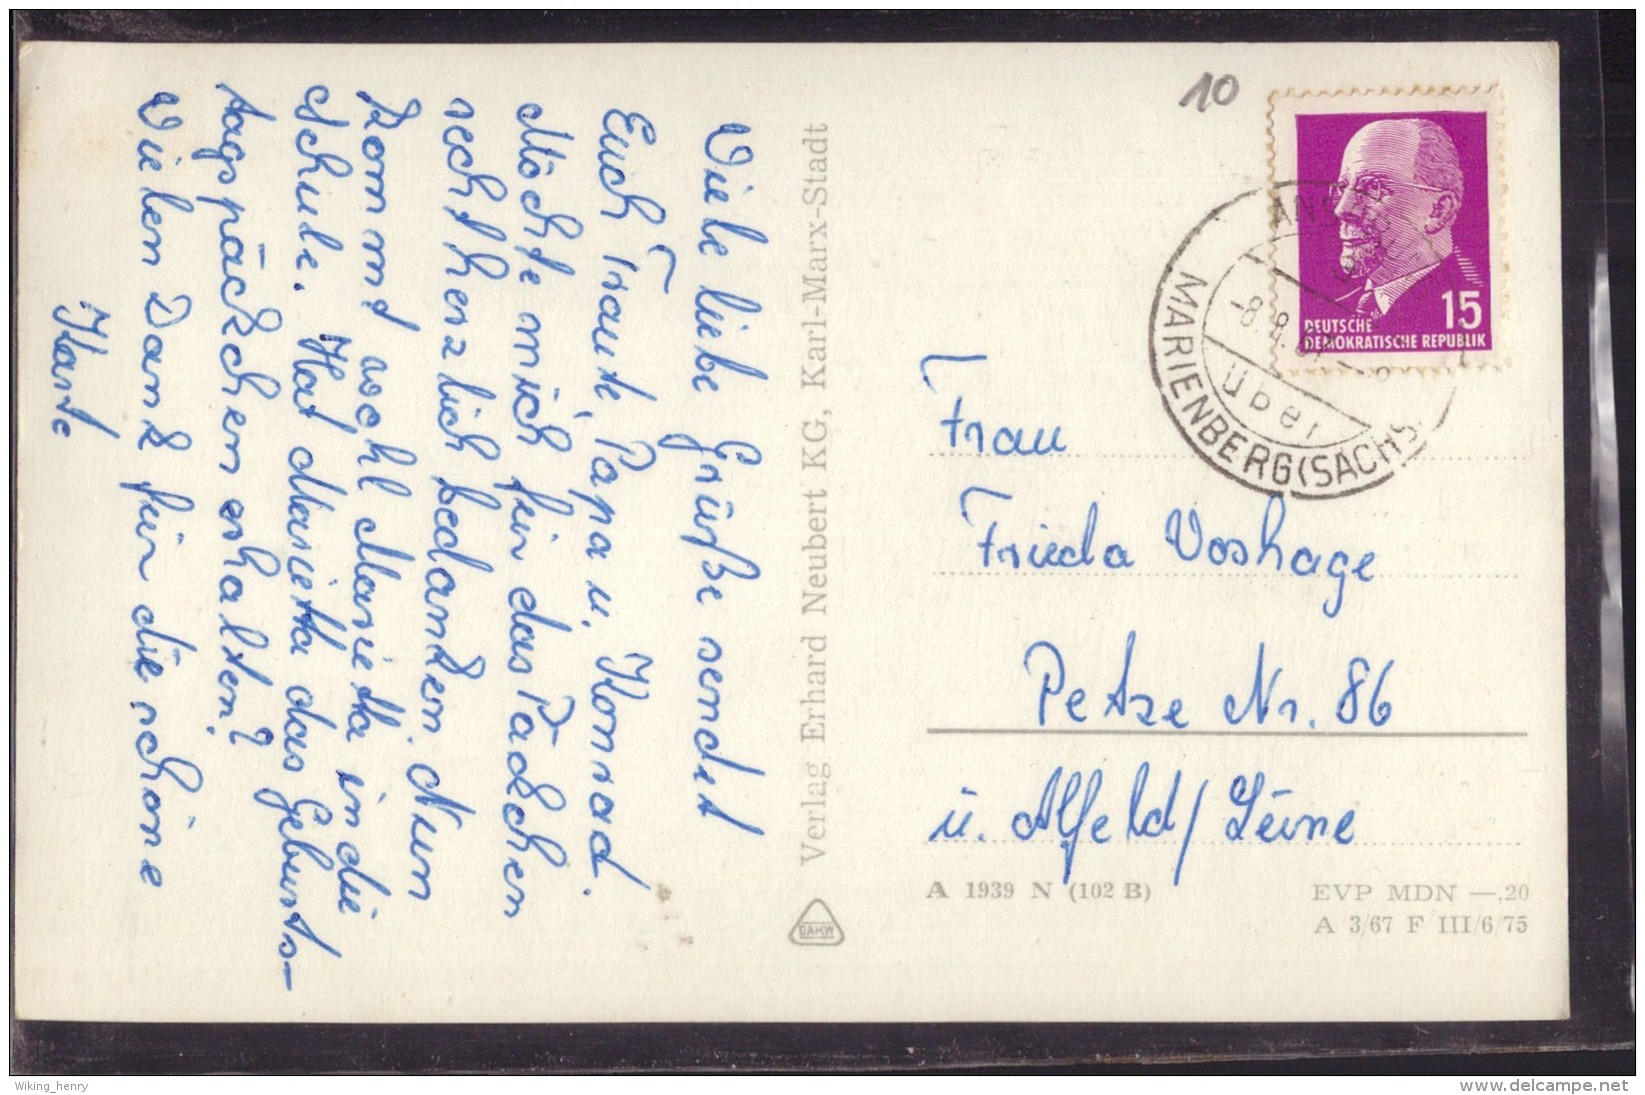 Viele liebe Grüße sendet
Euch Traute, Papa u. Konrad.
Möchte mich für das Päckchen
recht herzlich bedanken. Nun
kommt wohl Marietta in die
Schule. Hat Marietta das Geburts-
tagspäckchen erhalten?
Vielen Dank für die schöne
Karte
Verlag Erhard Neubert KG, Karl-Marx-Stadt
10
15
DEUTSCHE
DEMOKRATISCHE REPUBLIK
-8.
über
MARIENBERG (SACHS
Frau
Frieda Voshage
Petze Nr. 86
ü. Alfeld/Leine
A 1939 N (102 B)
EVP MDN —,20
A 3/67 F III/6/75
Wiking_henry
www.delcampe.net